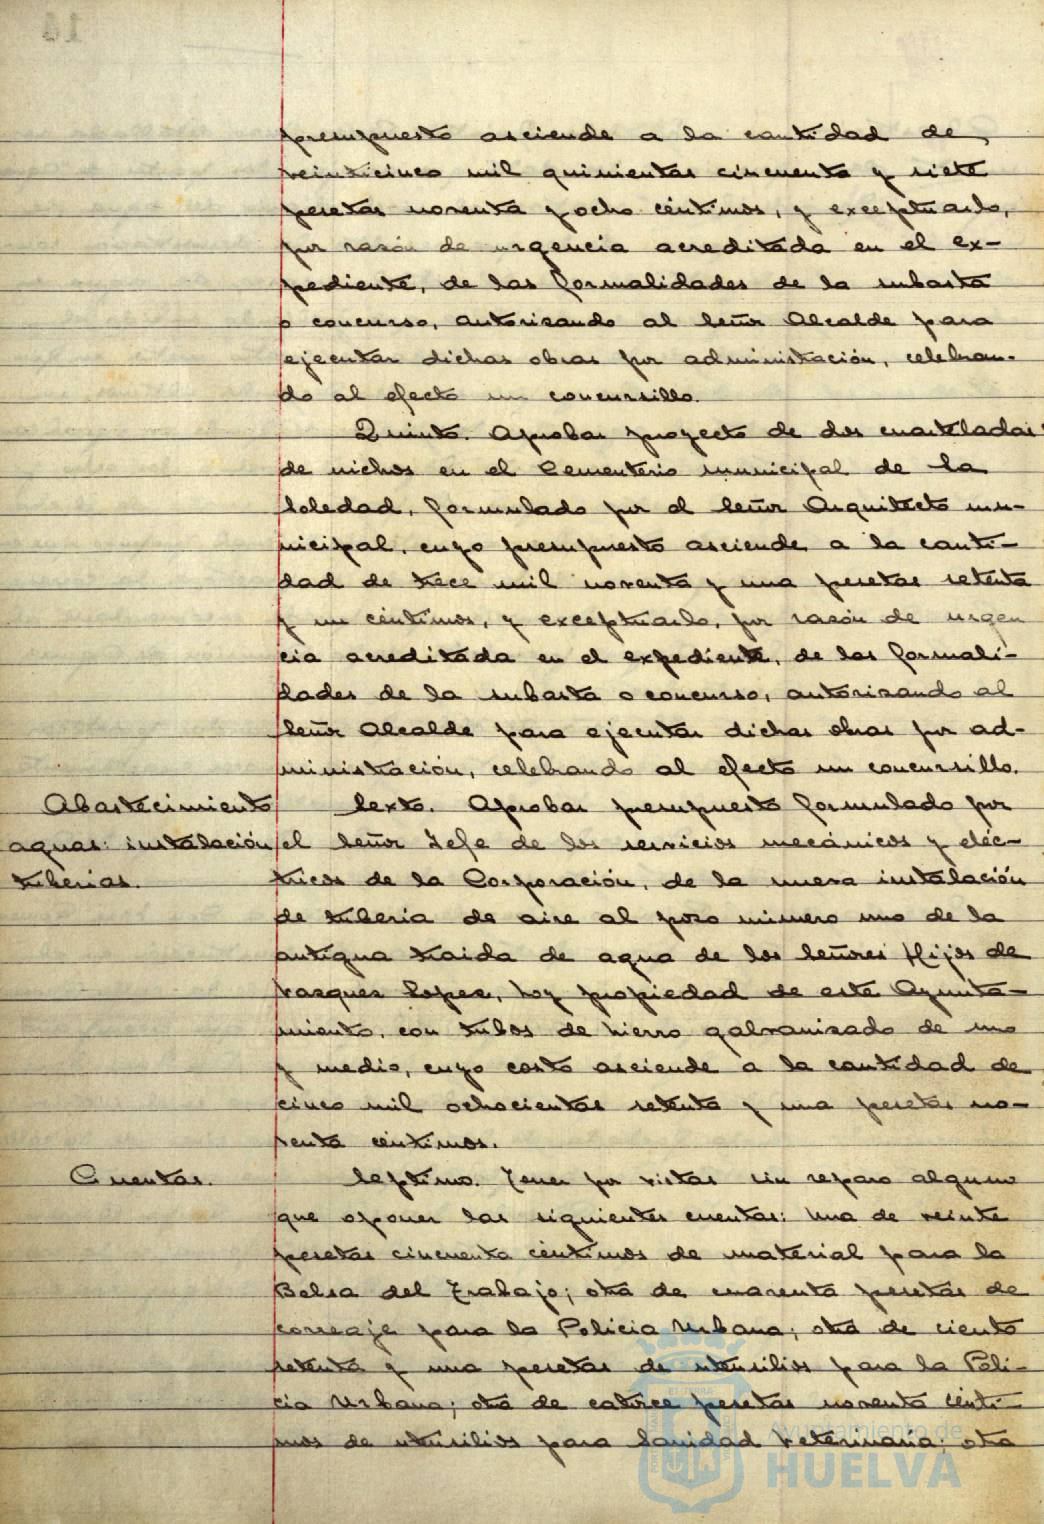 presupuesto asciende a la cantidad de
veinticinco mil quinientas cincuenta y siete
pesetas noventa y ocho céntimos, y exceptuarlo,
por razón de urgencia acreditada en el ex-
pediente, de las formalidades de la subasta
o concurso, autorizando al Señor Alcalde para
ejecutar dichas obras por administración, celebran-
do al efecto un concursillo.
Quinto. Aprobar proyecto de dos cuarteladas
de nichos en el Cementerio municipal de la
Soledad, formulado por el Señor Arquitecto mu-
nicipal, cuyo presupuesto asciende a la canti-
dad de trece mil noventa y una pesetas setenta
y un céntimos, y exceptuarlo, por razón de urgen
cia acreditada en el expediente, de las formali-
dades de la subasta o concurso, autorizando al
Señor Alcalde para ejecutar dichas obras por ad-
ministración, celebrando al efecto un concursillo.
Abastecimiento
aguas: instalación
tuberias.
Sexto. Aprobar presupuesto formulado por
el Señor Jefe de los servicios mecánicos y eléc-
tricos de la Corporación, de la nueva instalación
de tuberia de aire al pozo número uno de la
antigua traida de agua de los Señores Hijos de
Vazquez Lopez, hoy propiedad de este Ayunta-
miento, con tubos de hierro galvanizado de uno
y medio, cuyo costo asciende a la cantidad de
cinco mil ochocientas setenta y una pesetas no-
venta céntimos.
Cuentas.
Septimo. Tener por vistas sin reparo alguno
que oponer las siguientes cuentas: Una de veinte
pesetas cincuenta céntimos de material para la
Bolsa del Trabajo; otra de cuarenta pesetas de
correaje para la Policia Urbana; otra de ciento
setenta y una pesetas de utensilios para la Poli-
cia Urbana; otra de catorce pesetas noventa cénti-
mos de utensilios para Sanidad Veterinaria; otra
Ayuntamiento de
HUELVA